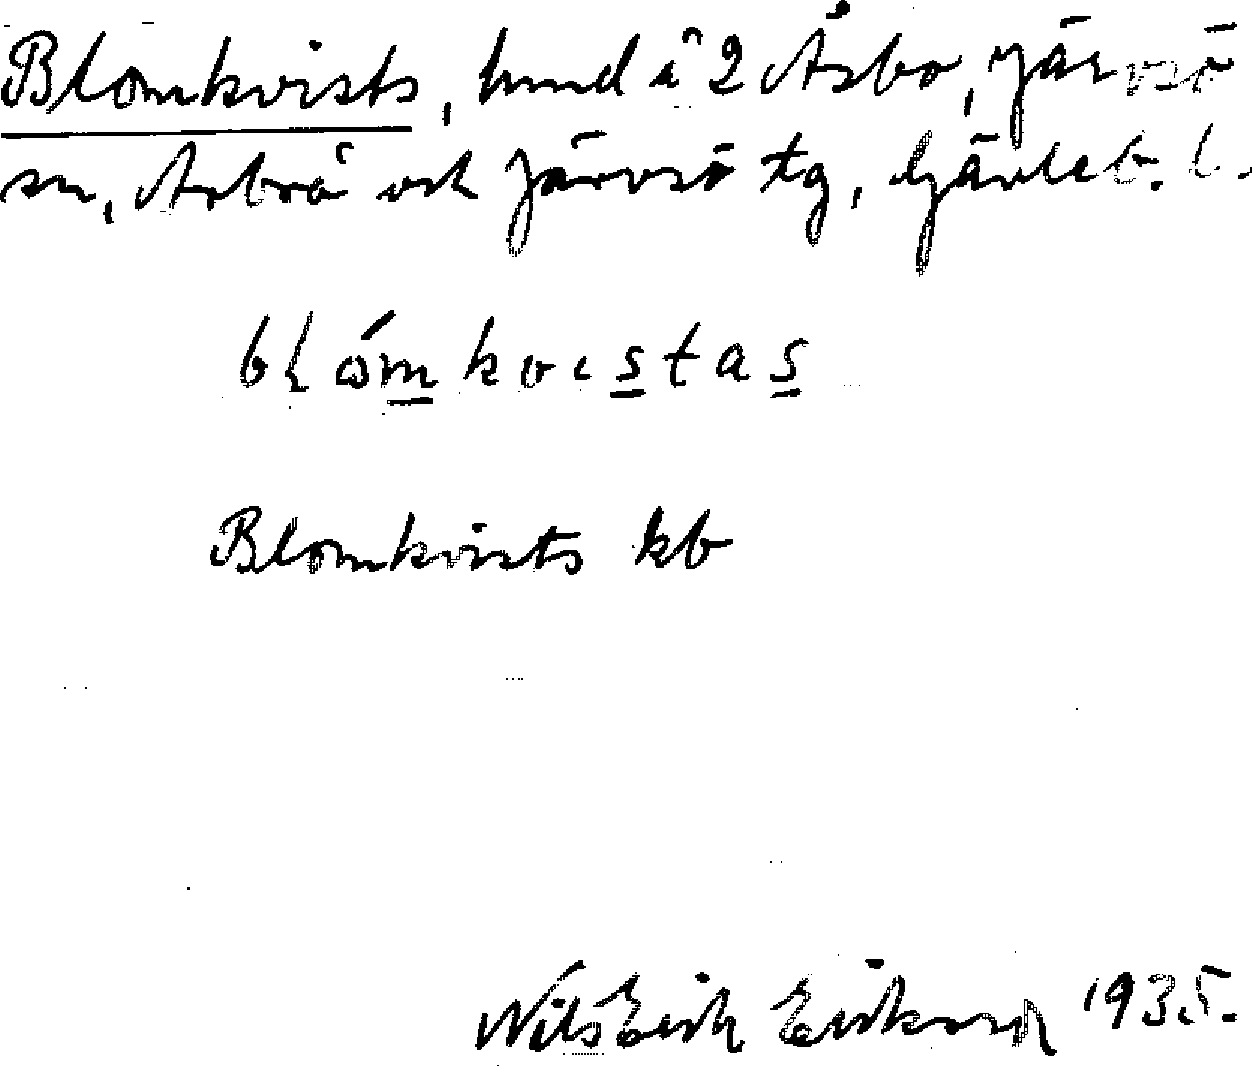 Blomkvists, hmd å 2 Åsbo, Järvsö
sn, Arbrå och Järvsö tg, Gävleb. l.
blómkvistas
Blomkvists kb
Nils Erik Erikson 1935.